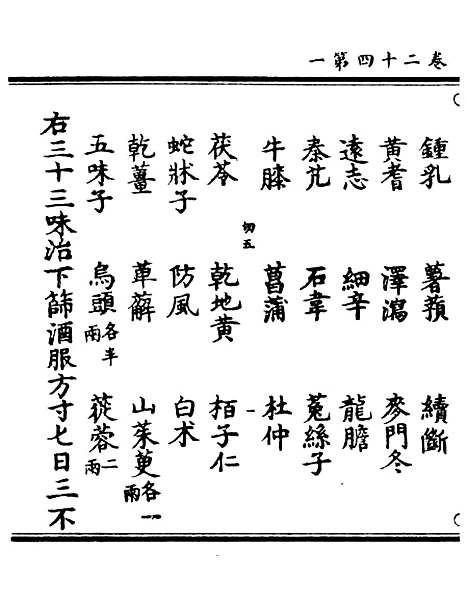 卷二十四第一
鍾乳 薯蕷 續斷
黃耆 澤瀉 麥門冬
遠志 細辛 龍膽
秦艽 石韋 菟絲子
牛膝 菖蒲 杜仲
切五
茯苓 乾地黃 栢子仁
蛇牀子 防風 白朮
乾薑 萆薢 山茱萸各一兩
五味子 烏頭各半兩 蓯蓉二兩
右三十三味治下篩酒服方寸七日三不